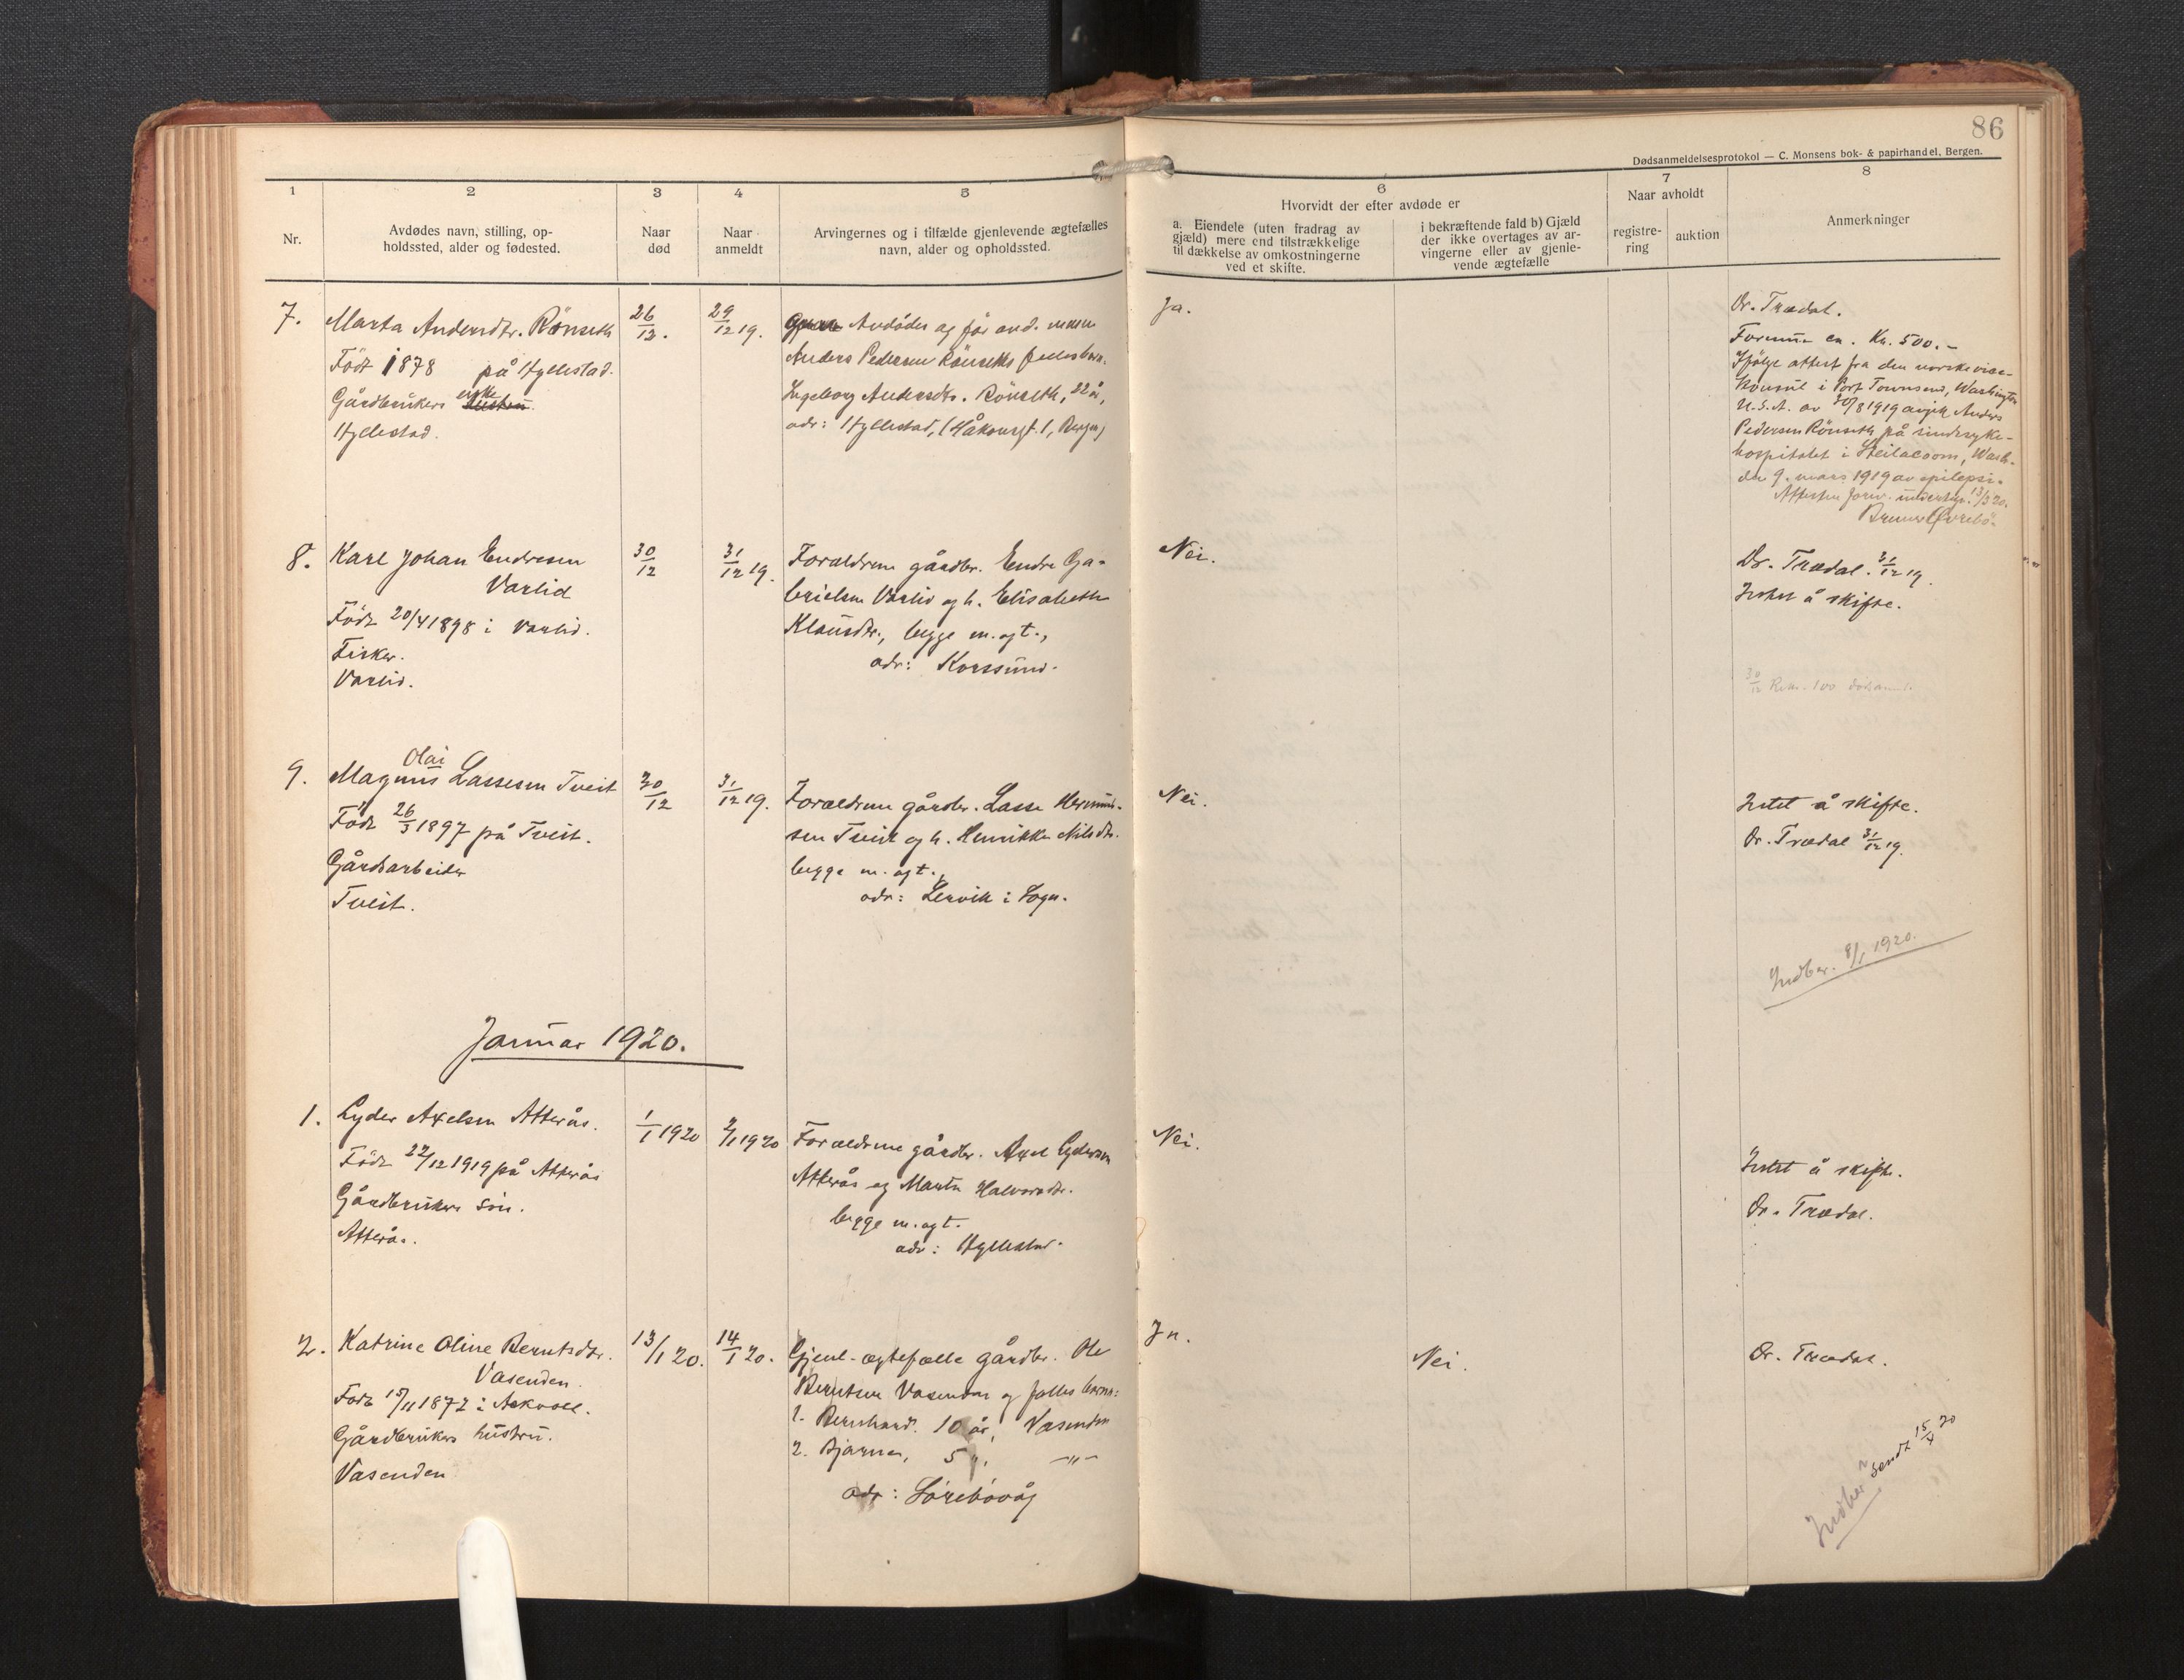 86
Dødsanmeldelsesprotokol — C. Monsens bok- & papirhandel, Bergen.
1
Nr.
2
Avdødes navn, stilling, op-
holdssted, alder og fødested.
3
Naar
død
4
Naar
anmeldt
5
Arvingernes og i tilfælde gjenlevende ægtefælles
navn, alder og opholdssted.
6
Hvorvidt der efter avdøde er
a. Eiendele (uten fradrag av
gjæld) mere end tilstrækkelige
til dækkelse av omkostningerne
ved et skifte.
i bekræftende fald b) Gjæld
der ikke overtages av ar-
vingerne eller av gjenle-
vende ægtefælle
7
Naar avholdt
registre-
ring
auktion
8
Anmerkninger
7.
Marta Andersdtr. Rönseth
Född 1878 på Hyllestad.
Gårdbrukers enke
Hyllestad.
26/12.
29/12 19.
Avdödes og för avd. mann
Anders Pedersen Rönseths fellesbarn.
Ingeborg Andersdtr. Rönseth, 22 år,
adr: Hyllestad, (Håkonsgt. 1, Bergen)
Ja.
Dr. Trædal.
Formue ca. Kr. 500.-
Ifölge attest fra den norske vise-
konsul i Port Townsend, Washington
U.S.A. av 30/8 1919 avgik Anders
Pedersen Rönseth på sindssyke-
hospitalet i Steilacoom, Wash.
den 9. mars 1919 av epilepsi.
13/3 20.
8.
Karl Johan Endresen
Varlid
Född 20/4 1898 i Varlid.
Fisker.
Varlid.
30/12
31/12 19.
Forældrene gårdbr. Endre Ga-
brielsen Varlid og h. Elisabeth
Klausdtr., begge m. ogt.,
adr: Korssund.
Nei.
Dr. Trædal. 31/12 19.
Intet å skifte.
30/12
100
9.
Magnus Olai Lassesen Tveit
Född 26/3 1897 på Tveit.
Gårdsarbeider
Tveit.
30/12
31/12 19.
Forældrene gårdbr. Lasse Hermund-
sen Tveit og h. Henrikke Nilsdtr.
begge m. ogt.,
adr: Lervik i Sogn.
Nei.
Intet å skifte.
Dr. Trædal 31/12 19.
Indber. 8/1 1920.
Januar 1920.
1.
Lyder Axelsen Atterås.
Född 22/12 1919 på Atterås
Gårdbrukers sön.
Atterås.
1/1 1920
2/1 1920
Forældrene gårdbr. Axel Lydersen
Atterås og Marta Halvorsdtr.
begge m. ogt.
adr: Hyllestad.
Nei.
Intet å skifte.
Dr. Trædal.
2.
Katrine Oline Berntsdtr.
Vasenden.
Född 15/11 1872 i Askvoll.
Gårdbrukers hustru.
Vasenden
13/1 20.
14/1 20.
Gjenl. ægtefælle gårdbr. Ole
Berntsen Vasenden og felles barn:
1. Bernhard. 10 år, Vasenden
2. Bjarne, 5 ", -"-
adr: Sörebövåg
Ja.
Nei.
Dr. Trædal.
Indber. sendt 15/ 20